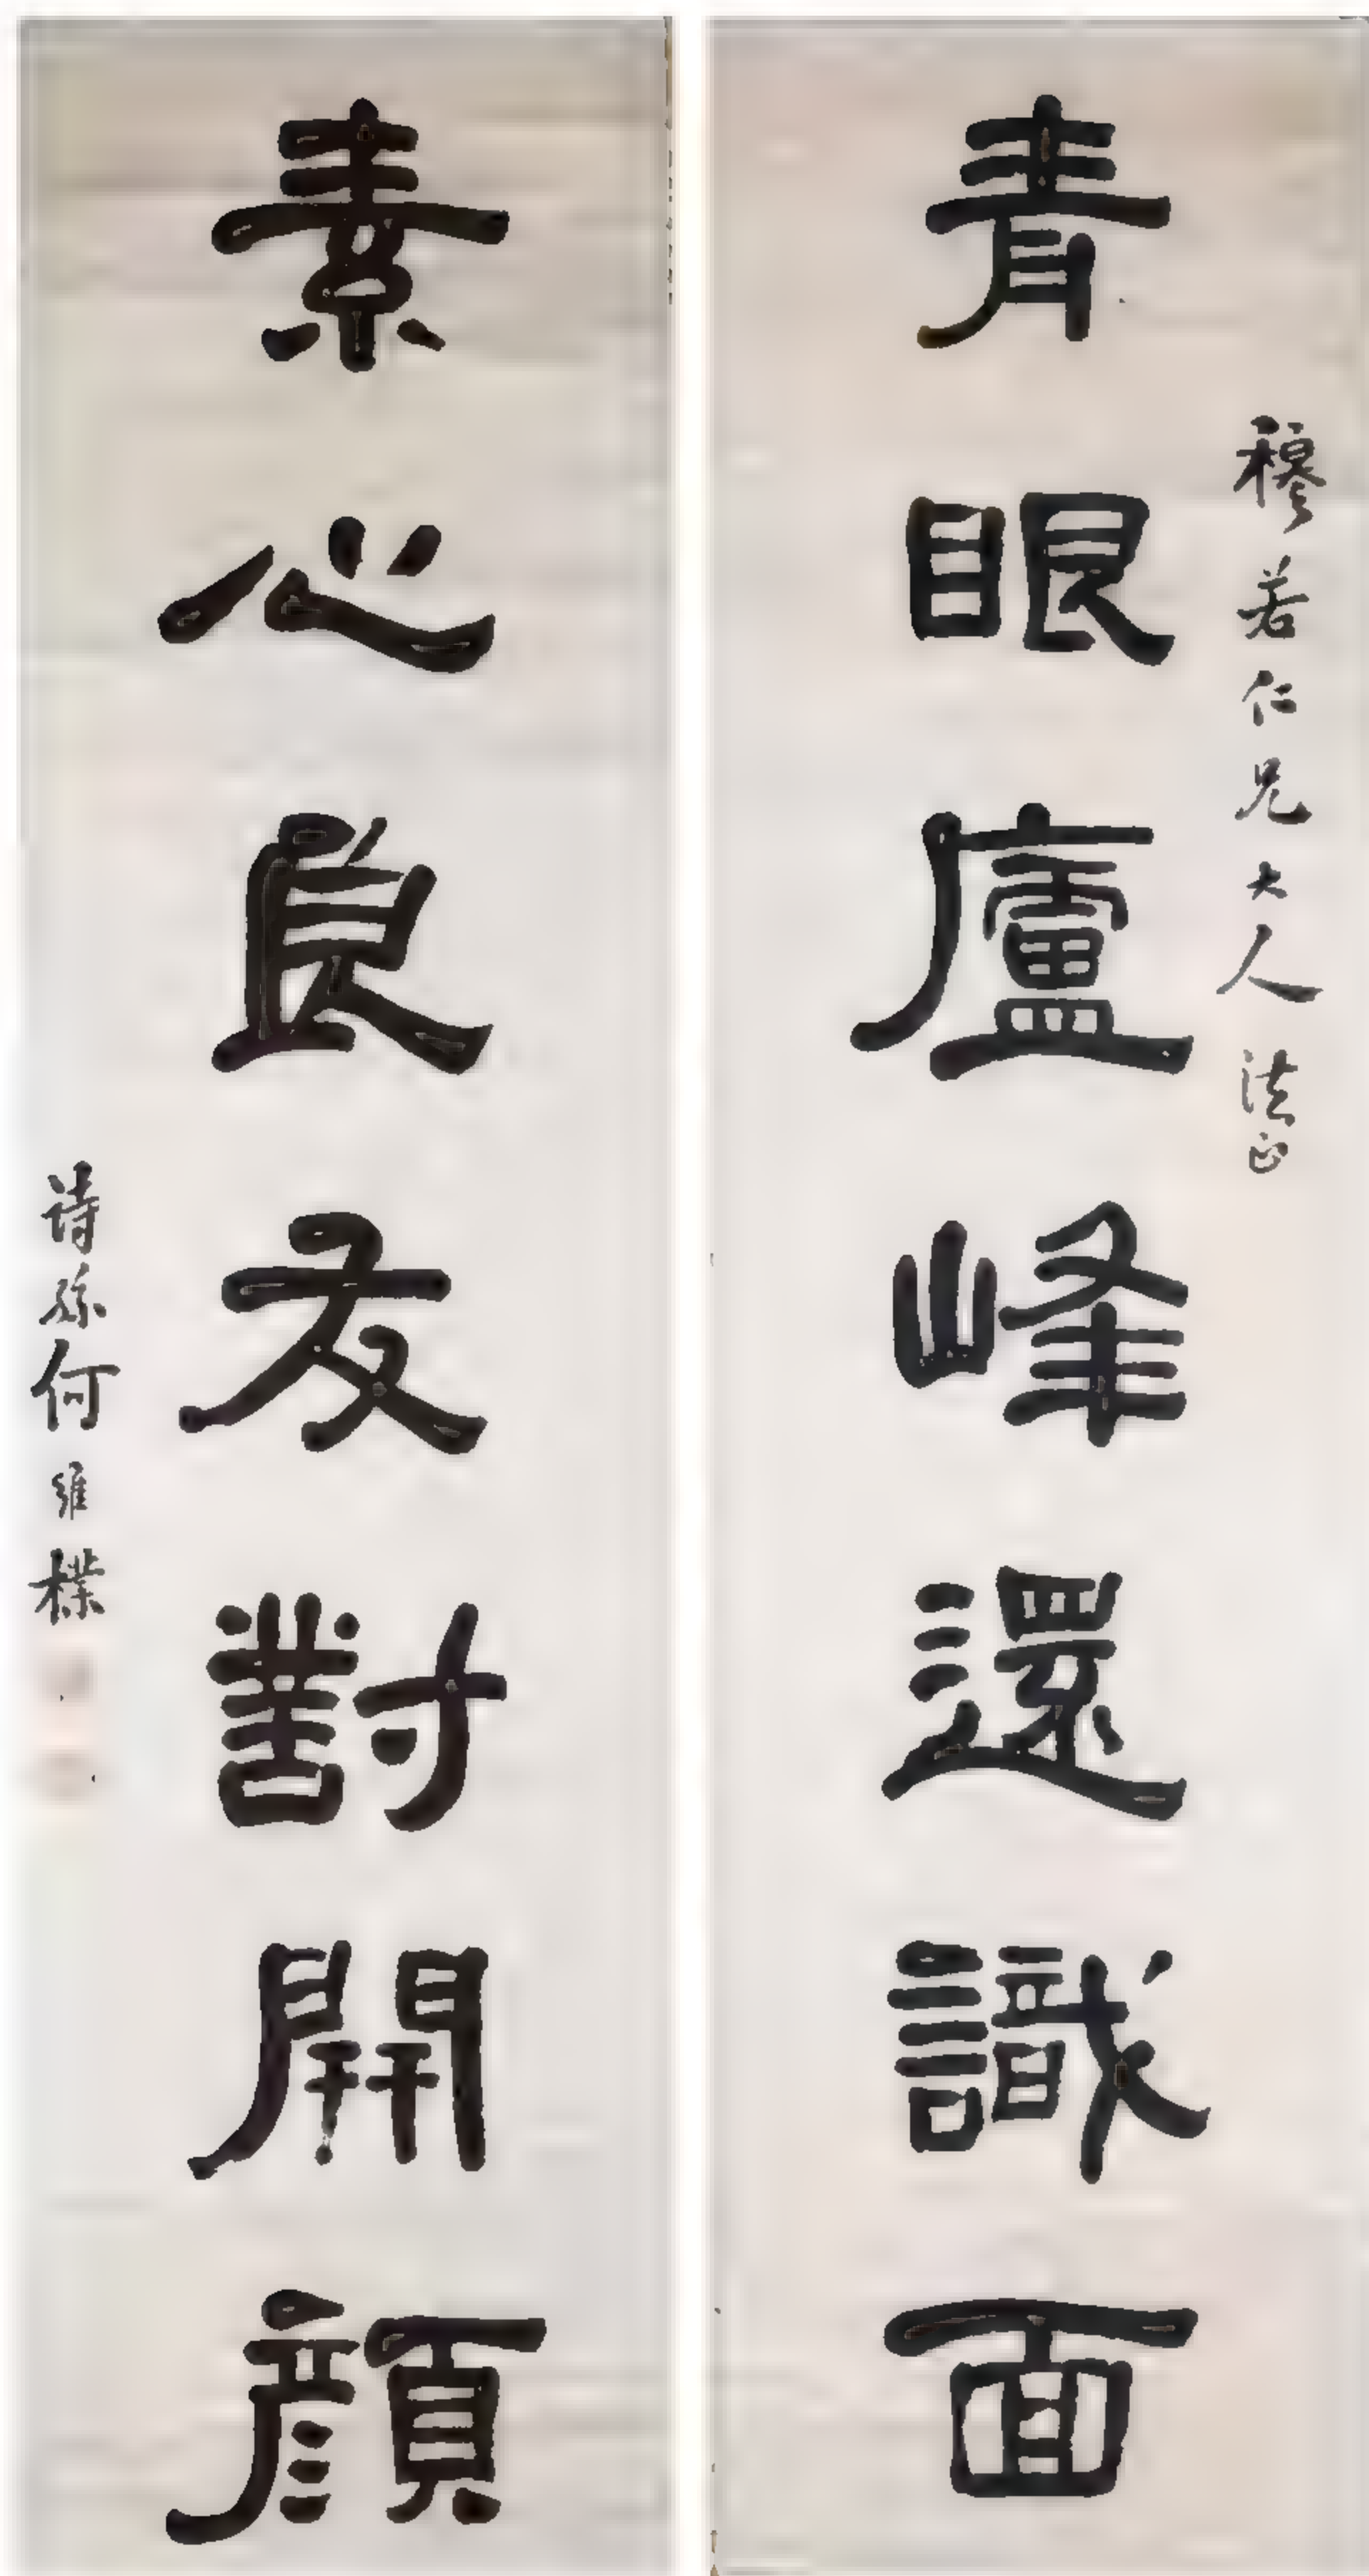 青眼廬峰還識面
穆若仁兄大人法正
素心良友對開顏
詩孫何維樸